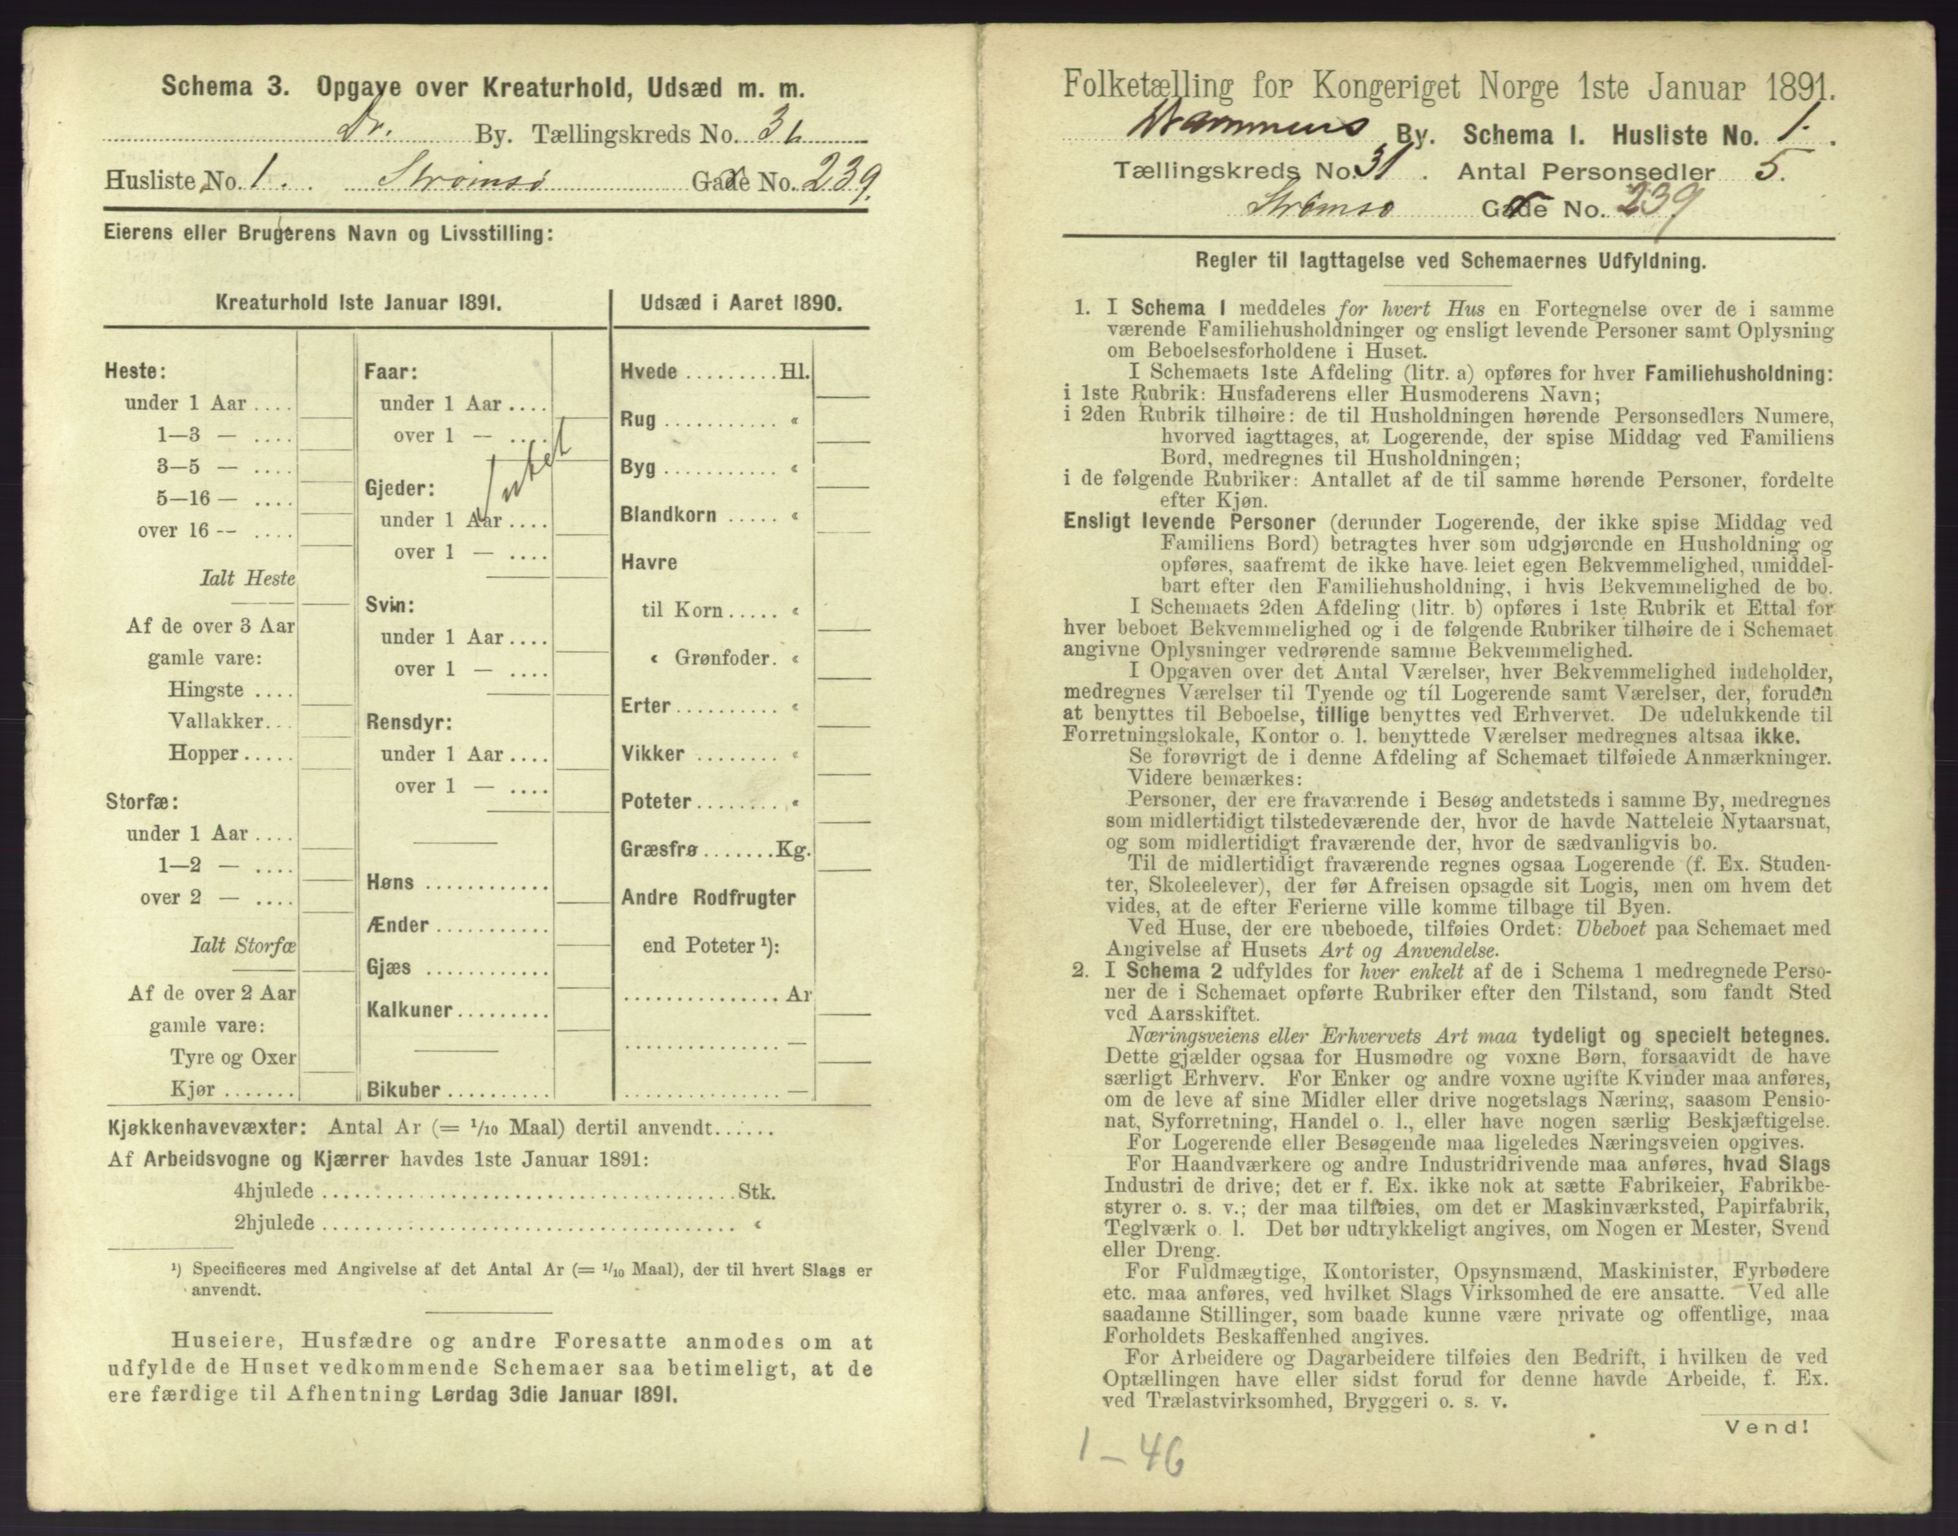 Schema 3. Opgave over Kreaturhold, Udsæd m. m.
Dr. By. Tællingskreds No. 31
Husliste No. 1. Strømsø Gade No. 239.
Eierens eller Brugerens Navn og Livsstilling:
Kreaturhold 1ste Januar 1891.
Heste:
under 1 Aar ....
1—3 — ....
3—5 — ....
5—16 — ....
over 16 — ....
Ialt Heste
Af de over 3 Aar
gamle vare:
Hingste ....
Vallakker...
Hopper.....
Storfæ:
under 1 Aar ....
1—2 — ....
over 2 — ....
Ialt Storfæ
Af de over 2 Aar
gamle vare:
Tyre og Oxer
Kjør .......
Faar:
under 1 Aar ....
over 1 — ....
Intet
Gjeder:
under 1 Aar ....
over 1 — ....
Svin:
under 1 Aar ....
over 1 — ....
Rensdyr:
under 1 Aar ....
over 1 — ....
Høns ............
Ænder ...........
Gjæs ............
Kalkuner .........
Bikuber ..........
Udsæd i Aaret 1890.
Hvede ......... Hl.
Rug ........... «
Byg ........... «
Blandkorn ..... «
Havre
til Korn ..... «
« Grønfoder. «
Erter ......... «
Vikker ........ «
Poteter ........ «
Græsfrø ....... Kg.
Andre Rodfrugter
end Poteter ¹):
............... Ar
............... —
............... —
Kjøkkenhavevæxter: Antal Ar (= 1/10 Maal) dertil anvendt......
Af Arbeidsvogne og Kjærrer havdes 1ste Januar 1891:
4hjulede ..................................... Stk.
2hjulede ..................................... «
¹) Specificeres med Angivelse af det Antal Ar (= 1/10 Maal), der til hvert Slags er
anvendt.
Huseiere, Husfædre og andre Foresatte anmodes om at
udfylde de Huset vedkommende Schemaer saa betimeligt, at de
ere færdige til Afhentning Lørdag 3die Januar 1891.
Folketælling for Kongeriget Norge 1ste Januar 1891.
Drammens By. Schema I. Husliste No. 1.
Tællingskreds No. 31. Antal Personsedler 5.
Strømsø Gade No. 239
Regler til Iagttagelse ved Schemaernes Udfyldning.
1. I Schema I meddeles for hvert Hus en Fortegnelse over de i samme
værende Familiehusholdninger og ensligt levende Personer samt Oplysning
om Beboelsesforholdene i Huset.
I Schemaets 1ste Afdeling (litr. a) opføres for hver Familiehusholdning:
i 1ste Rubrik: Husfaderens eller Husmoderens Navn;
i 2den Rubrik tilhøire: de til Husholdningen hørende Personsedlers Numere,
hvorved iagttages, at Logerende, der spise Middag ved Familiens
Bord, medregnes til Husholdningen;
i de følgende Rubriker: Antallet af de til samme hørende Personer, fordelte
efter Kjøn.
Ensligt levende Personer (derunder Logerende, der ikke spise Middag ved
Familiens Bord) betragtes hver som udgjørende en Husholdning og
opføres, saafremt de ikke have leiet egen Bekvemmelighed, umiddel-
bart efter den Familiehusholdning, i hvis Bekvemmelighed de bo.
I Schemaets 2den Afdeling (litr. b) opføres i 1ste Rubrik et Ettal for
hver beboet Bekvemmelighed og i de følgende Rubriker tilhøire de i Schemaet
angivne Oplysninger vedrørende samme Bekvemmelighed.
I Opgaven over det Antal Værelser, hver Bekvemmelighed indeholder,
medregnes Værelser til Tyende og til Logerende samt Værelser, der, foruden
at benyttes til Beboelse, tillige benyttes ved Erhvervet. De udelukkende til
Forretningslokale, Kontor o. l. benyttede Værelser medregnes altsaa ikke.
Se forøvrigt de i denne Afdeling af Schemaet tilføiede Anmærkninger.
Videre bemærkes:
Personer, der ere fraværende i Besøg andetsteds i samme By, medregnes
som midlertidigt tilstedeværende der, hvor de havde Natteleie Nytaarsnat,
og som midlertidigt fraværende der, hvor de sædvanligvis bo.
Til de midlertidigt fraværende regnes ogsaa Logerende (f. Ex. Studen-
ter, Skoleelever), der før Afreisen opsagde sit Logis, men om hvem det
vides, at de efter Ferierne ville komme tilbage til Byen.
Ved Huse, der ere ubeboede, tilføies Ordet: Ubeboet paa Schemaet med
Angivelse af Husets Art og Anvendelse.
2. I Schema 2 udfyldes for hver enkelt af de i Schema 1 medregnede Perso-
ner de i Schemaet opførte Rubriker efter den Tilstand, som fandt Sted
ved Aarsskiftet.
Næringsveiens eller Erhvervets Art maa tydeligt og specielt betegnes.
Dette gjælder ogsaa for Husmødre og voxne Børn, forsaavidt de have
særligt Erhverv. For Enker og andre voxne ugifte Kvinder maa anføres,
om de leve af sine Midler eller drive nogetslags Næring, saasom Pensio-
nat, Syforretning, Handel o. l., eller have nogen særlig Beskjæftigelse.
For Logerende eller Besøgende maa ligeledes Næringsveien opgives.
For Haandværkere og andre Industridrivende maa anføres, hvad Slags
Industri de drive; det er f. Ex. ikke nok at sætte Fabrikeier, Fabrikbe-
styrer o. s. v.; der maa tilføies, om det er Maskinværksted, Papirfabrik,
Teglværk o. l. Det bør udtrykkeligt angives, om Nogen er Mester, Svend
eller Dreng.
For Fuldmægtige, Kontorister, Opsynsmænd, Maskinister, Fyrbødere
etc. maa anføres, ved hvilket Slags Virksomhed de ere ansatte. Ved alle
saadanne Stillinger, som baade kunne være private og offentlige, maa
Forholdets Beskaffenhed angives.
For Arbeidere og Dagarbeidere tilføies den Bedrift, i hvilken de ved
Optællingen have eller sidst forud for denne havde Arbeide, f. Ex.
ved Trælastvirksomhed, Bryggeri o. s. v.
Vend!
1 – 46